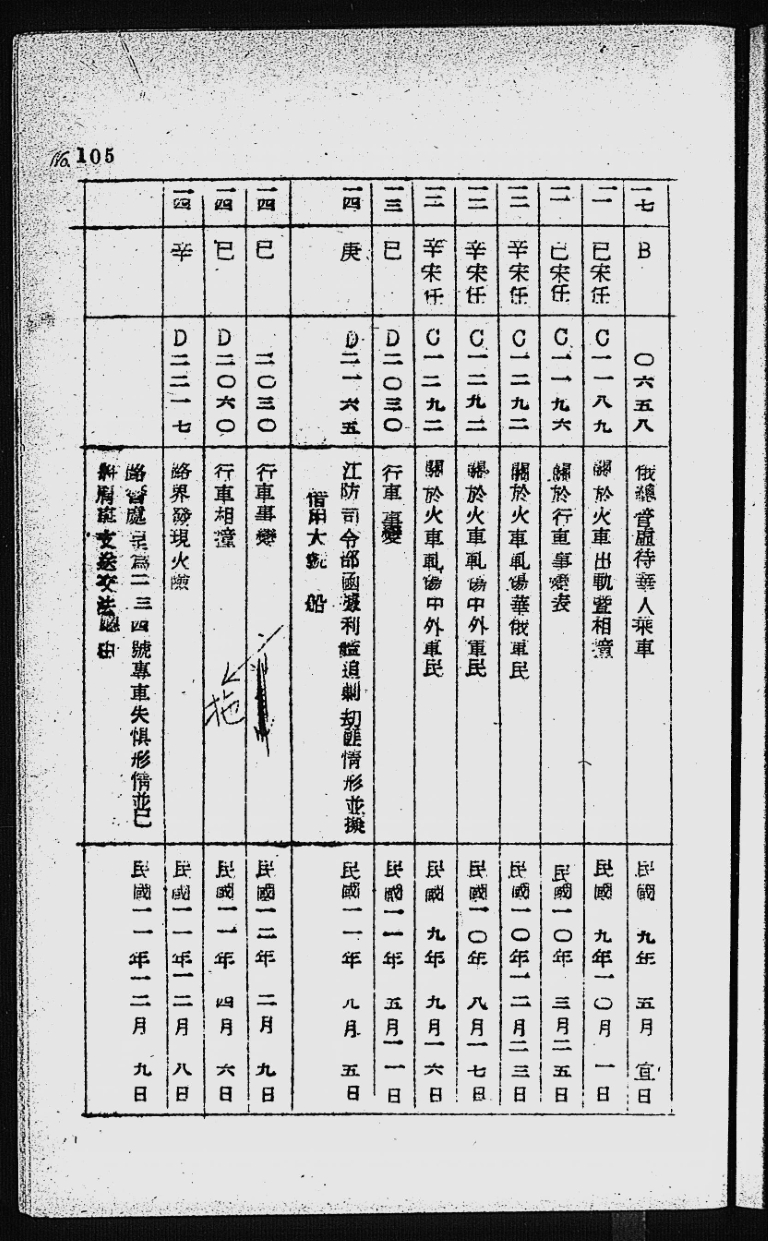 No. 105
一七 B 〇六五八 俄總管虐待華人乘車 民國 九年 五月 宣日
一一 已宋任 C一一八九 關於火車出軌暨相撞 民國 九年一〇月 一日
一一 已宋任 C一一九六 關於行車事變表 民國一〇年 三月二五日
一二 辛宋任 C一二九二 關於火車軋傷華俄軍民 民國一〇年一二月二三日
一二 辛宋任 C一二九二 關於火車軋傷中外軍民 民國一〇年 八月一七日
一二 辛宋任 C一二九二 關於火車軋傷中外軍民 民國 九年 九月一六日
一三 已 D二〇三〇 行車事變 民國一一年 五月一一日
一四 庚 D二一六五 江防司令部函 利 追剿劫匪情形並擬 民國一一年 八月 五日
借用大 船
一四 已 二〇三〇 行車事變 民國一二年 二月 九日
一四 已 D二〇六〇 行車相撞 民國一一年 四月 六日
拖
一四 辛 D二二一七 路界發現火險 民國一一年一二月 八日
路警處呈為二三四號專車失慎形情並已 民國一一年一二月 九日
將肩 交法